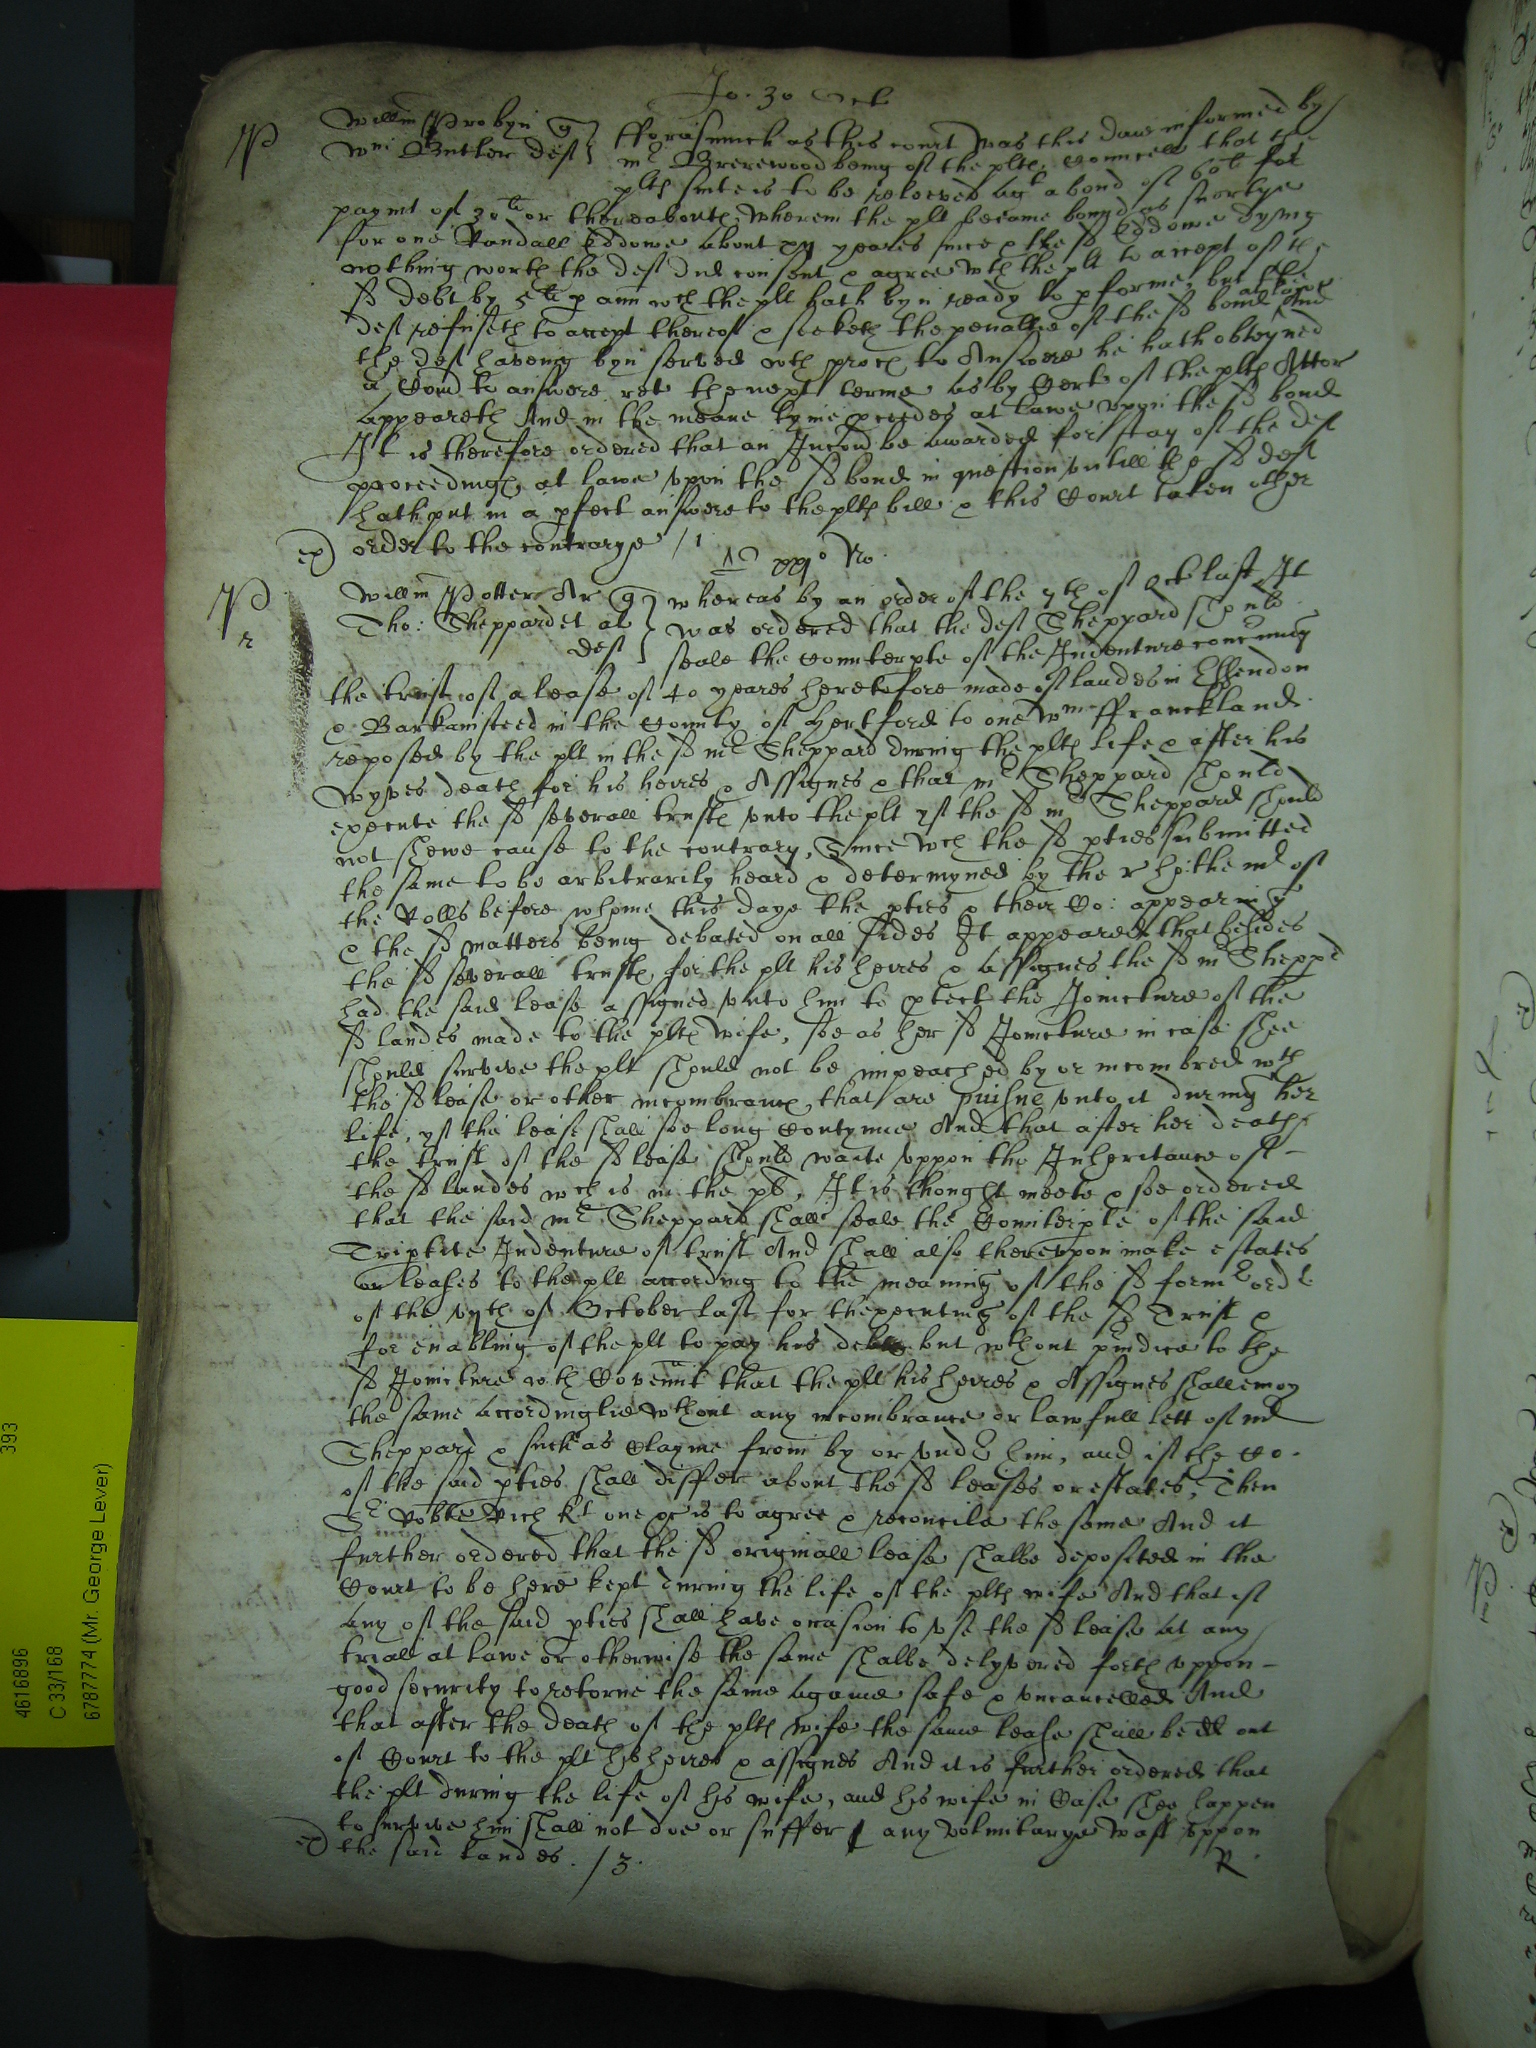 Jo. 30 Octo
P
Willm Probyn q
Wm Butler deft
fforasmuch as this court was this daie informed by
mr Brerewood being of the pltes Councell that the
pltes suite is to be releeved agt a bond of 60li for
paymt of 30li or thereaboutes, wherein the plt became bound as suertye
for one Randall Eddowe about xij yeares since & the sd Eddowe dying
nothing worth the deft did consent & agree wth the plt to accept of the
sd debt by 5li p ann wch the plt hath byn ready to pforme, but the
deft refuseth to accept thereof & seeketh the penaltie of the sd bond at lawe And
the deft haveing byn served wth proces to Answere he hath obteyned
a Comd to answere ret the next terme as by Cert of the pltes Attor
appeareth And in the meane tyme pceedes at lawe upon the sd bond
It is therefore ordered that an Iniucon be awarded for stay of the deft
proceedinges at lawe upon the sd bond in question untill the sd deft
hath put in a pfect answere to the pltes bill & this Court taken other
ex order to the contrarye /1
xxjo No
P
r
Willm Potter Ar q
Tho: Sheppard et al
deft
whereas by an order of the 7th of Octob last It
was ordered that the deft Sheppard should
seale the Counterpte of the Indenture concerning
the trust of a lease of 40 yeares heretofore made of landes in Essendon
& Barkamsteed in the County of Hertford to one Wm ffranckland
reposed by the plt in the sd mr Sheppard during the pltes life & after his
wyves death for his heires & Assignes & that mr Sheppard should
execute the sd severall trustes unto the plt yf the sd mr Sheppard should
not shewe cause to the contrary, Since wch the sd pties submitted
the same to be arbitrarily heard & determyned by the r ho: the mr of
the Rolls before whome this daye the pties & their Co: appearing
& the sd matters being debated on all sides It appeared that besides
the sd severall trustes for the plt his heires & assignes the sd mr Sheppd
had the said lease assigned unto him to ptect the Joincture of the
sd landes made to the pltes wife, soe as her sd Joincture in case shee
should survive the plt should not be impeached by or incombred wth
the sd lease or other incombrances that are puisne unto it during her
life, yf the lease shall soe long contynue And that after her death
the trust of the sd lease should waite uppon the Inheritance of
the sd landes wch is in the plt, It is thought meete & soe ordered
that the said mr Sheppard shall seale the Counterpte of the said
Triptite Indenture of trust And shall also thereupon make estates
or leases to the plt according to the meaning of the sd former order
of the vijth of October last for thexecuting of the sd Trust &
for enabling of the plt to pay his debtes but wthout preiudice to the
sd Joincture wth Covennt that the plt his heires & Assignes shall enioy
the same accordinglie wthout any incombrance or lawfull lett of mr
Sheppard & such as Clayme from by or under him, and if the Co.
of the said pties shall differ about the sd leases or estates, Then
Sr Robte Rich kt one &c is to agree & reconcile the same And it
further ordered that the sd originall lease shalbe deposited in the
Court to be here kept during the life of the pltes wife And that if
any of the said pties shall have occasion to use the sd lease at any
triall at lawe or otherwise the same shalbe delyvered forth uppon
good security to retorne the same againe safe & uncancelled And
that after the death of the pltes wife the same lease shall be dd out
of Court to the plt his heires & assignes And it is further ordered that
the plt during the life of his wife, and his wife in Case shee happen
to survive him shall not doe or suffer any voluntarye wast uppon
ex the said landes. /3.
R
4616896 393
C 33/168
6787774 (Mr. George Lever)